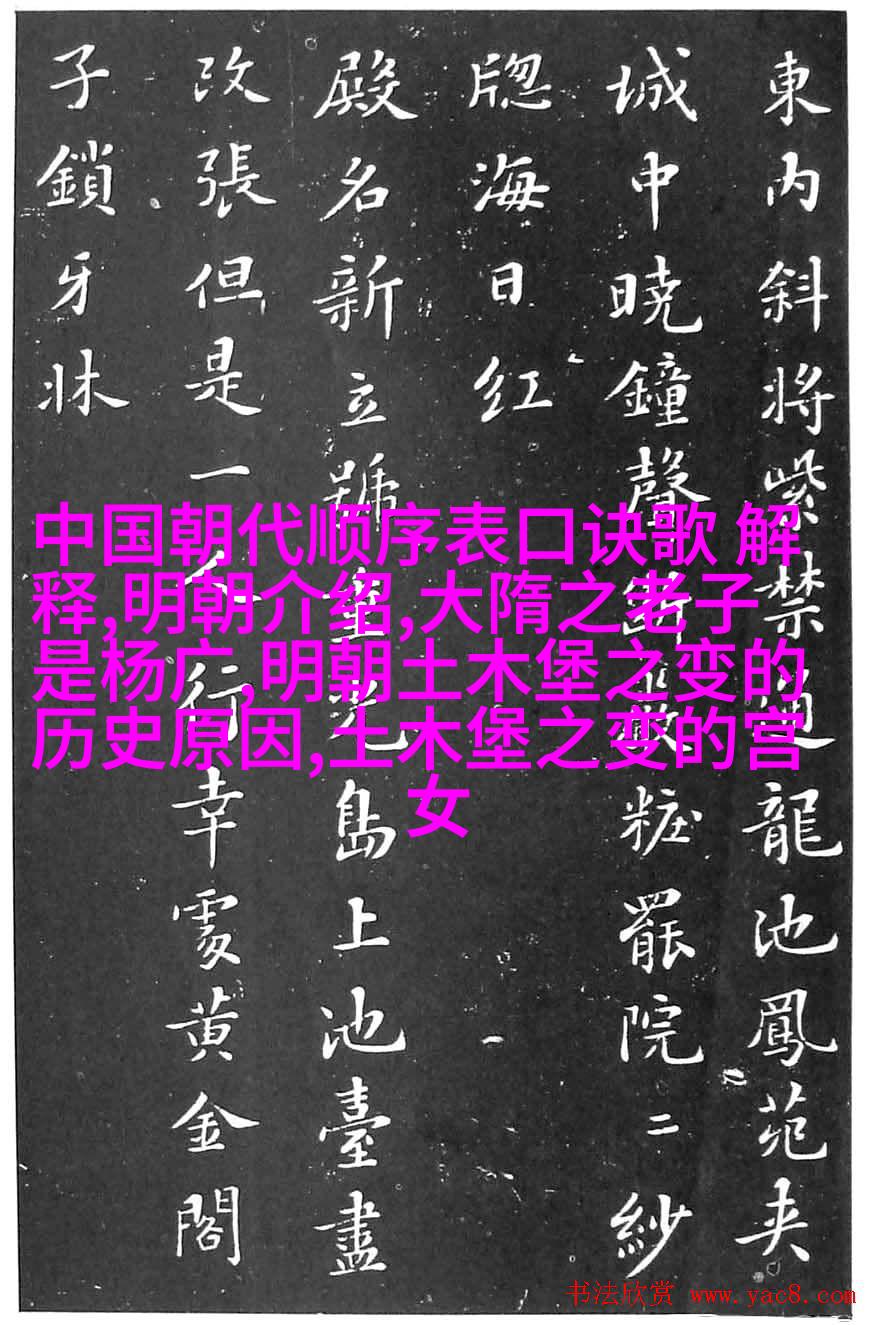 東内斜將紫禁通龍池鳳苑夾
城中曉鐘聲斷嚴粧罷院二紗
牎海日红
殿名新立號重光島上池臺盡
改張但是一人行幸處黄金閣
子鎖牙牀
中国朝代顺序表口诀歌 解
释,明朝介绍,大隋之老子
是杨广,明朝土木堡之变的
历史原因,土木堡之变的宫
女
书法欣赏 www.yac8.com